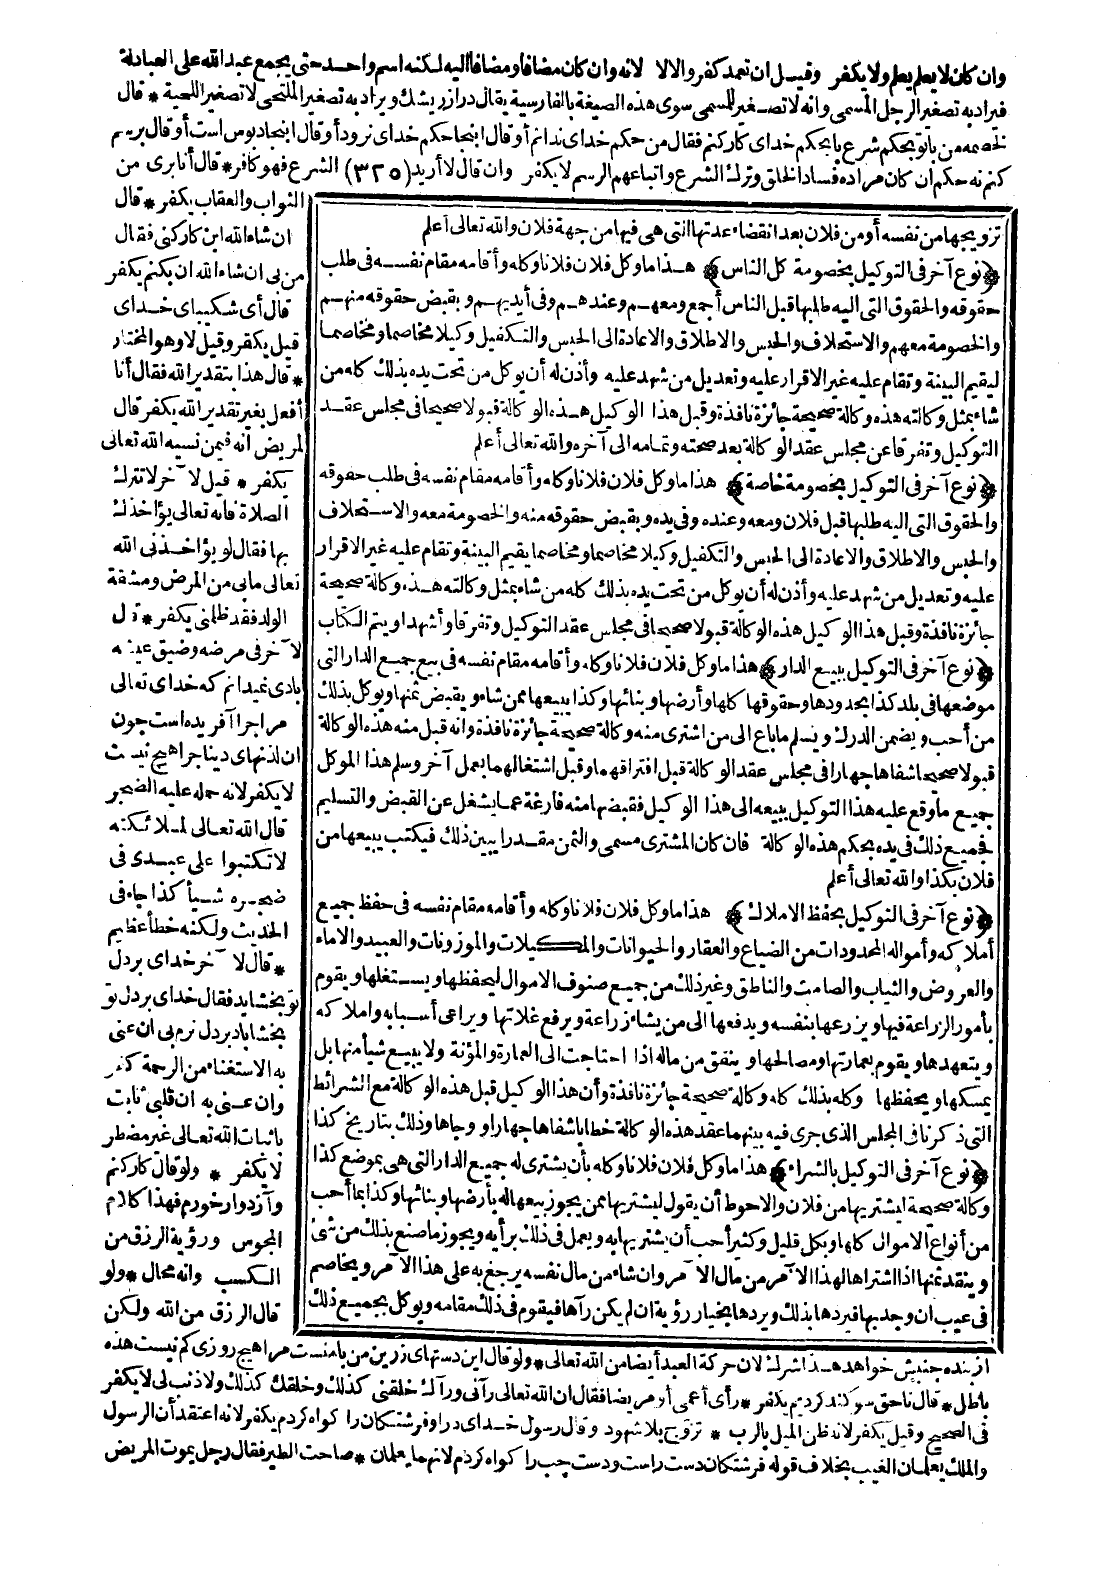 وان كان لا يعلم يعلم ولا يكفر وقيل ان تعمد كفر والا لا لانه وان كان مضافا ومضافا اليه لكنه اسم واحد حتى يجمع عبد الله على العبادلة
فيراد به تصغير الرجل المسمى وانه لا تصغير للمسمى سوى هذه الصيغة بالفارسية يقال دراز ريشك ويراد به تصغير الملتحى لا تصغير اللحية * قال
لخصمه من با تو بحكم شرع يا بحكم خداى كار كنم فقال من حكم خداى ندانم أو قال اينجا حكم خداى نرود أو قال اينجا دبوس است أو قال برسم
كنم نه حكم ان كان مراده فساد الخلق وترك الشرع واتباعهم الرسم لا يكفر وان قال لا أريد (٣٢٥) الشرع فهو كافر * قال أنا برى من
الثواب والعقاب يكفر * قال
ان شاء الله اين كار كنى فقال
من بى ان شاء الله ان بكنم يكفر
قال أى شكيباى خداى
قيل يكفر وقيل لا وهو المختار
* قال هذا بتقدير الله فقال أنا
أفعل بغير تقدير الله يكفر قال
لمريض انه فيمن نسيه الله تعالى
يكفر * قيل لآخر لا تترك
الصلاة فانه تعالى يؤاخذك
بها فقال لو يؤاخذنى الله
تعالى مابى من المرض ومشقة
الولد فقد ظلمنى يكفر * قال
لآخر فى مرضه وضيق عيشه
بادى نميدانم كه خداى تعالى
مراجرا آفريده است جون
ان لذتهاى دينا جراهيج نيست
لا يكفر لانه حمله عليه الضجر
قال الله تعالى لملائكته
لا تكتبوا على عبدى فى
ضجره شيأ كذا جاء فى
الحديث ولكنه خطأ عظيم
* قال لآخر خداى بر دل
تو بخشايد فقال خداى بر دل تو
بخشاياد بر دل نرم بى ان عنى
به الاستغناء من الرحمة كفر
وان عنى به ان قلبى ثابت
باثبات الله تعالى غير مضطر
لا يكفر * ولو قال كار كنم
وآزدوار خورم فهذا كلام
المجوس ورؤية الرزق من
الكسب وانه محال * ولو
قال الرزق من الله ولكن
تزويجها من نفسه أو من فلان بعد انقضاء عدتها التى هى فيها من جهة فلان والله تعالى أعلم
﴿نوع آخر فى التوكيل بخصومة كل الناس﴾ هذا ما وكل فلان فلانا وكله وأقامه مقام نفسه فى طلب
حقوقه والحقوق التى اليه طلبها قبل الناس أجمع ومعهم وعندهم وفى أيديهم وبقبض حقوقه منهم
والخصومة معهم والاستحلاف والحبس والاطلاق والاعادة الى الحبس والتكفيل وكيلا مخاصما ومخاصما
ليقيم البينة وتقام عليه غير الاقرار عليه وتعديل من شهد عليه وأذن له أن يوكل من تحت يده بذلك كله من
شاء بمثل وكالته هذه وكالة صحيحة جائزة نافذة وقبل هذا الوكيل هذه الوكالة قبولا صحيحا فى مجلس عقد
التوكيل وتفرقا عن مجلس عقد الوكالة بعد صحته وتمامه الى آخره والله تعالى أعلم
﴿نوع آخر فى التوكيل بخصومة خاصة﴾ هذا ما وكل فلان فلانا وكله وأقامه مقام نفسه فى طلب حقوقه
والحقوق التى اليه طلبها قبل فلان ومعه وعنده وفى يده وبقبض حقوقه منه والخصومة معه والاستحلاف
والحبس والاطلاق والاعادة الى الحبس والتكفيل وكيلا مخاصما ومخاصما يقيم البينة وتقام عليه غير الاقرار
عليه وتعديل من شهد عليه وأذن له أن يوكل من تحت يده بذلك كله من شاء بمثل وكالته هذه وكالة صحيحة
جائزة نافذة وقبل هذا الوكيل هذه الوكالة قبولا صحيحا فى مجلس عقد التوكيل وتفرقا وأشهدا ويتم الكتاب
﴿نوع آخر فى التوكيل ببيع الدار﴾ هذا ما وكل فلان فلانا وكله وأقامه مقام نفسه فى بيع جميع الدار التى
موضعها فى بلد كذا بحدودها وحقوقها كلها وأرضها وبنائها وكذا يبيعها ممن شاء ويقبض ثمنها ويوكل بذلك
من أحب ويضمن الدرك ويسلم ما باع الى من اشترى منه وكالة صحيحة جائزة نافذة وانه قبل منه هذه الوكالة
قبولا صحيحا شفاها جهارا فى مجلس عقد الوكالة قبل افتراقهما وقبل اشتغالهما بعمل آخر وسلم هذا الموكل
جميع ما وقع عليه هذا التوكيل ببيعه الى هذا الوكيل فقبضها منه فارغة عما يشغل عن القبض والتسليم
فجميع ذلك فى يده بحكم هذه الوكالة فان كان المشترى مسمى والثمن مقدرا يبين ذلك فيكتب يبيعها من
فلان بكذا والله تعالى أعلم
﴿نوع آخر فى التوكيل بحفظ الاملاك﴾ هذا ما وكل فلان فلانا وكله وأقامه مقام نفسه فى حفظ جميع
أملاكه وأمواله المحدودات من الضياع والعقار والحيوانات والمكيلات والموزونات والعبيد والاماء
والعروض والثياب والصامت والناطق وغير ذلك من جميع صنوف الاموال ليحفظها ويستغلها ويقوم
بأمور الزراعة فيها ويزرعها بنفسه ويدفعها الى من يشاء زراعة ويرفع غلاتها ويراعى أسبابه واملاكه
ويتعهدها ويقوم بعمارتها ومصالحها وينفق من ماله اذا احتاجت الى العمارة والمؤنة ولا يبيع شيأ منها بل
يمسكها ويحفظها وكله بذلك كله وكالة صحيحة جائزة نافذة وأن هذا الوكيل قبل هذه الوكالة مع الشرائط
التى ذكرنا فى المجلس الذى جرى فيه بينهما عقد هذه الوكالة خطابا شفاها جهارا ووجاها وذلك بتاريخ كذا
﴿نوع آخر فى التوكيل بالشراء﴾ هذا ما وكل فلان فلانا وكله بأن يشترى له جميع الدار التى هى بموضع كذا
وكالة صحيحة ليشتريها من فلان والاحوط أن يقول ليشتريها ممن يجوز بيعها له بأرضها وبنائها وكذا بما أحب
من أنواع الاموال كلها وبكل قليل وكثير أحب أن يشتريها به ويعمل فى ذلك برأيه ويجوز ما صنع بذلك من شئ
وينقد ثمنها اذا اشتراها لهذا الآمر من مال الآمر وان شاء من مال نفسه يرجع به على هذا الآمر ويخاصم
فى عيب ان وجد بها فيردها بذلك ويردها بخيار رؤية ان لم يكن رآها فيقوم فى ذلك مقامه ويوكل بجميع ذلك
از بنده جنبش خواهد هذا شرك لان حركة العبد أيضا من الله تعالى * ولو قال اين دستهاى زرين من بامنست مراهيج روزى كم نيست هذه
باطل * قال ناحق سوكند كرديم يكفر * رأى أعمى أو مريضا فقال ان الله تعالى رآنى ورآك خلقنى كذلك وخلقك كذلك ولا ذنب لى لا يكفر
فى الصحيح وقيل يكفر لانه ظن الميل بالرب * تزوج بلا شهود وقال رسول خداى را وفرشتكان را كواه كردم يكفر لانه اعتقد أن الرسول
والملك يعلمان الغيب بخلاف قوله فرشتكان دست راست ودست چب را كواه كردم لانهما يعلمان * صاحت الطير فقال رجل يموت المريض